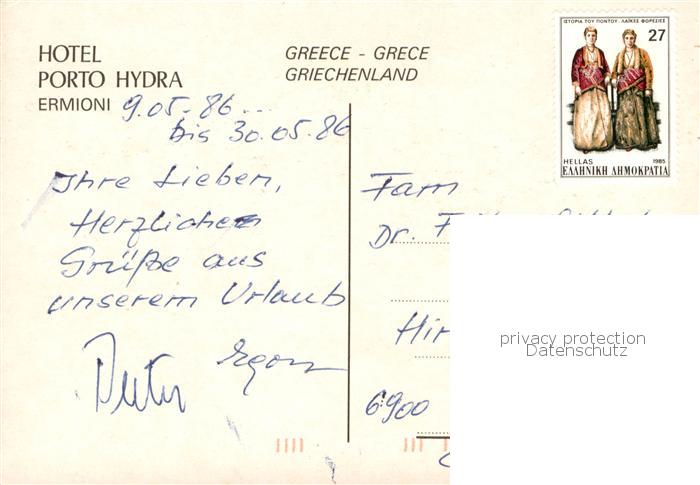 HOTEL
PORTO HYDRA
ERMIONI
GREECE - GRECE
GRIECHENLAND
ΙΣΤΟΡΙΑ ΤΟΥ ΠΟΝΤΟΥ - ΛΑΪΚΕΣ ΦΟΡΕΣΙΕΣ
27
HELLAS 1985
ΕΛΛΗΝΙΚΗ ΔΗΜΟΚΡΑΤΙΑ
9.05.86...
bis 30.05.86
Ihre Lieben,
Herzliche
Grüße aus
unserem Urlaub
Egon
Fam
Dr.
Hir
6900
privacy protection
Datenschutz